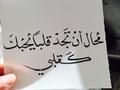 مُحال أنْ تَجدَ قلباً يُحبُكَ
كَقلبي